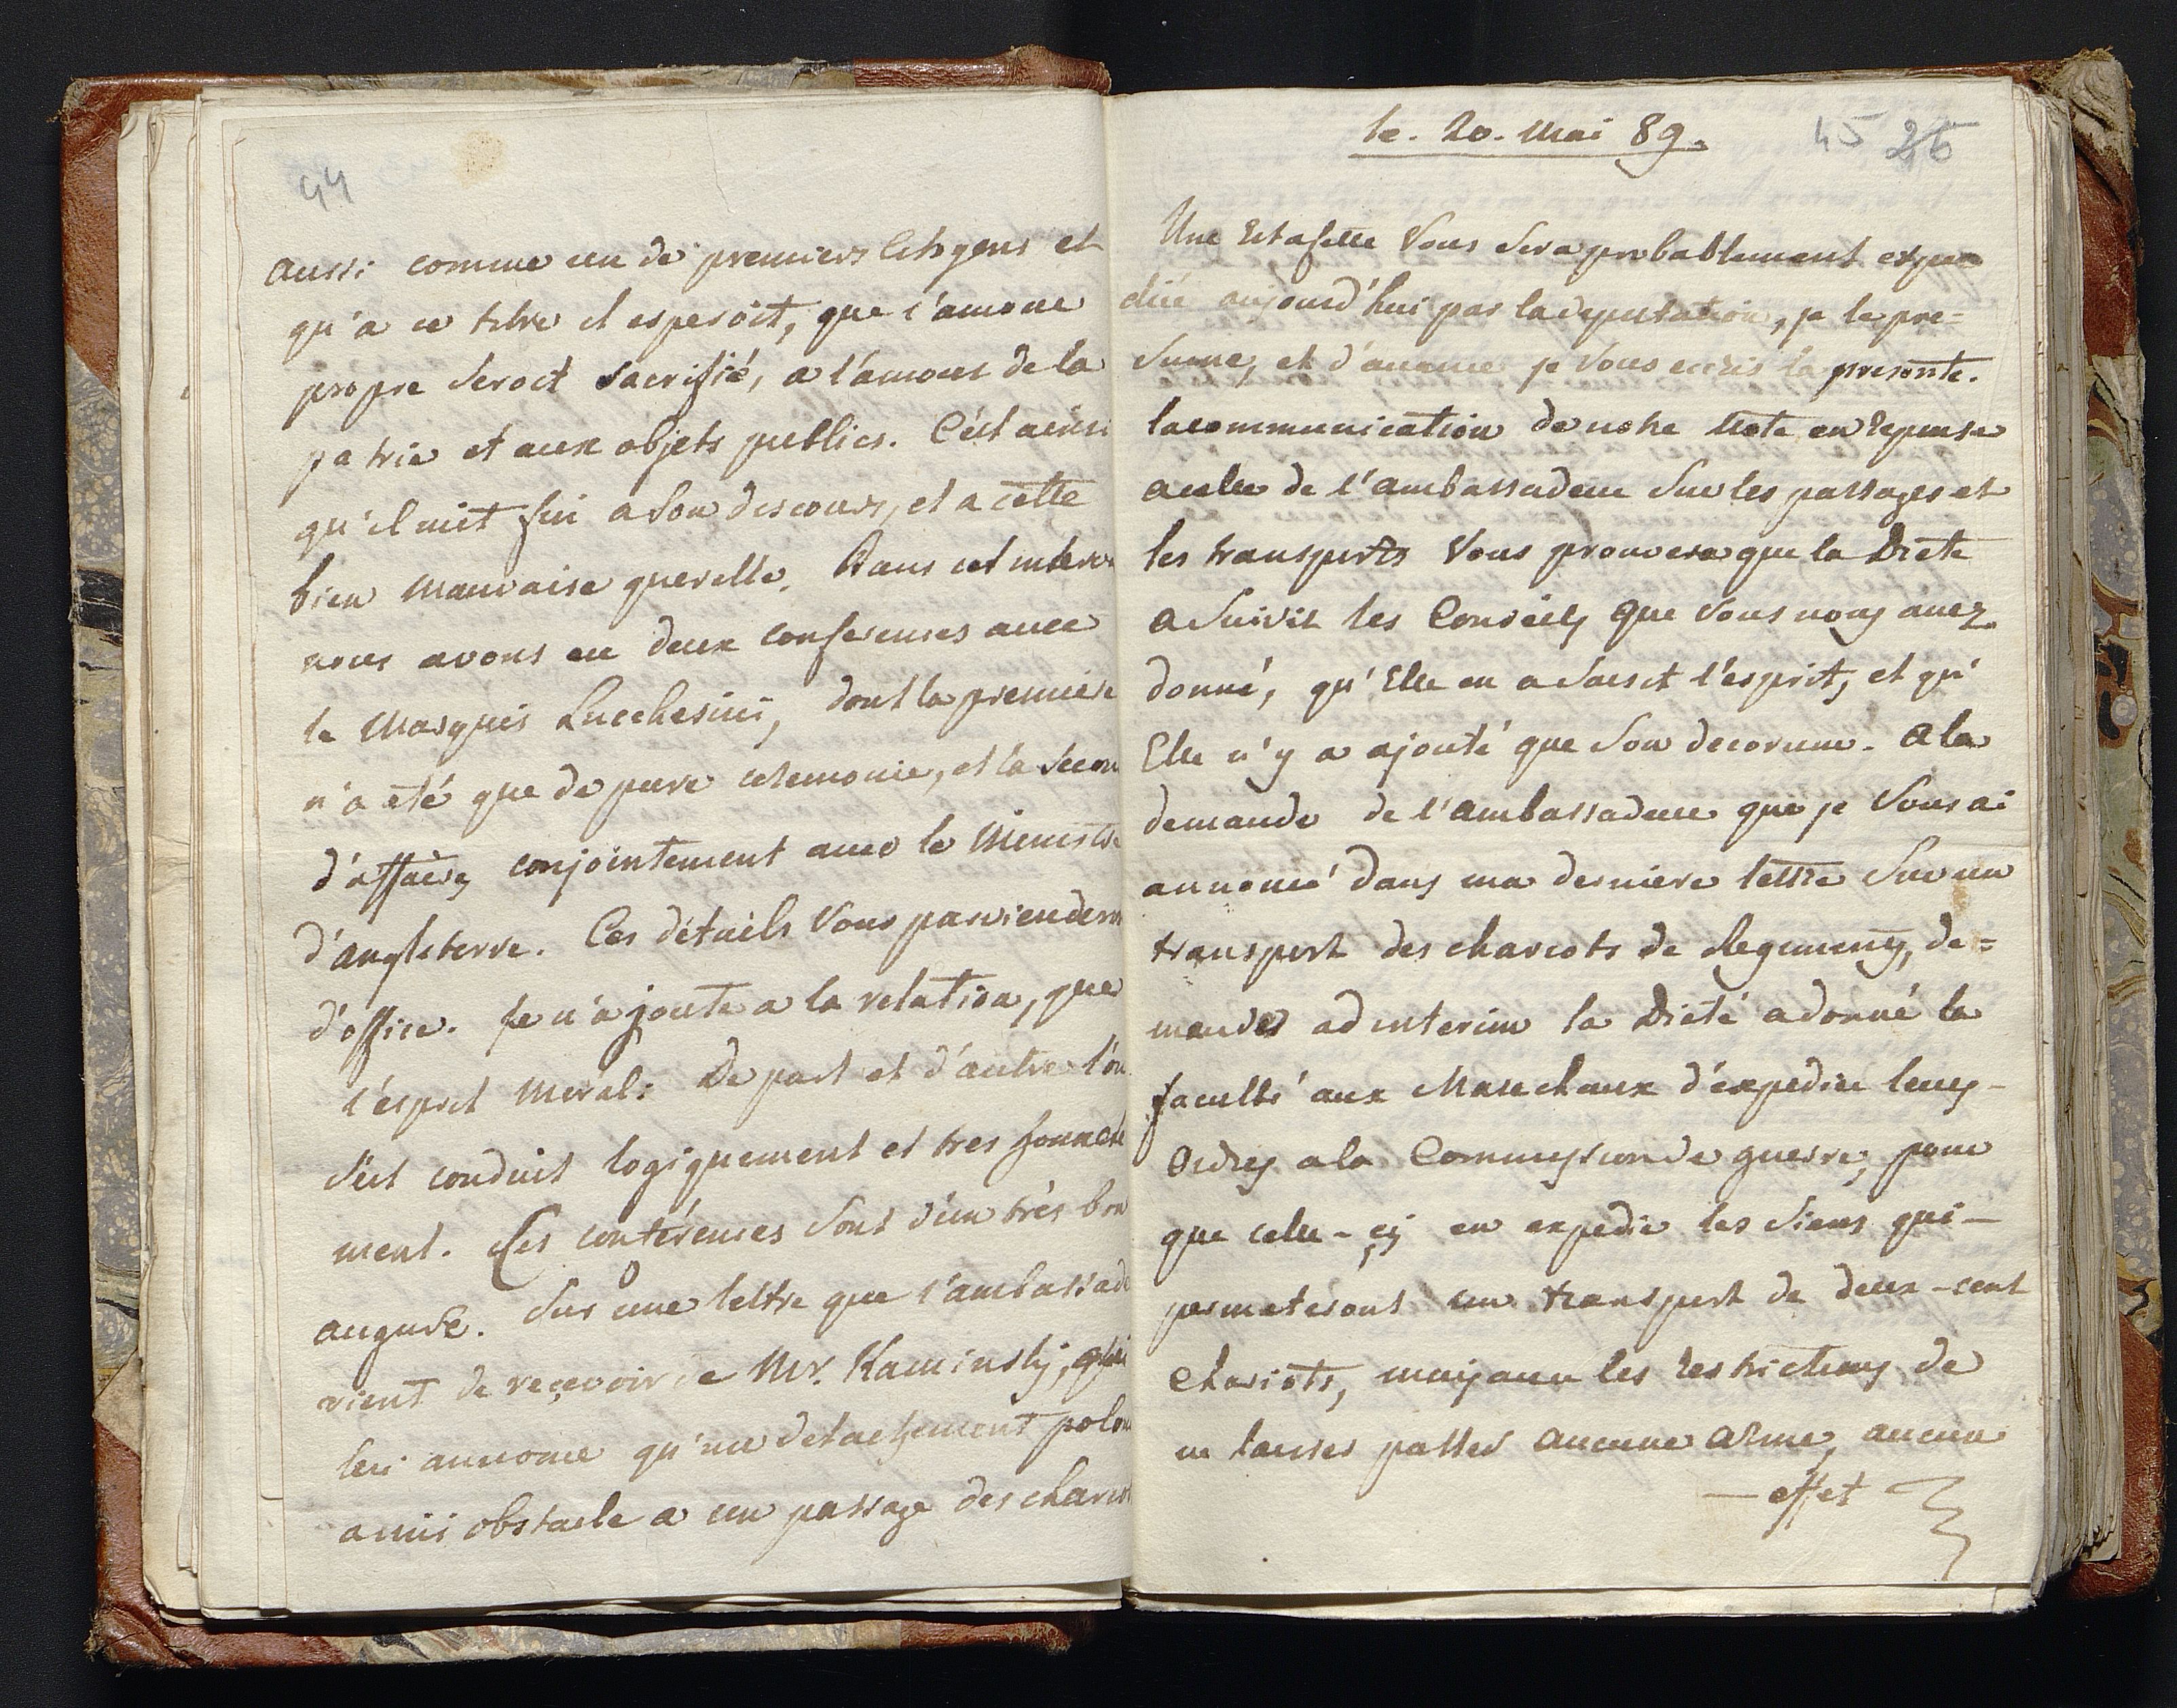 44
aussi comme un de premiers Citoyens et
qu'a ce titre il esperoit, que l'amour
propre seroit sacrifié, a l'amour de la
patrie et aux objets publics. C'est ainsi
qu'il mit fin a son discours, et a cette
bien mauvaise querelle. Dans cet interv
nous avons eu deux conferences avec
le Marquis Lucchesini, dont la premiere
n'a eté que de pure ceremonie, et la Secon
d'affaires conjointement avec le Ministre
d'angleterre. Ces détails Vous parviendern
d'office. Je n'ajoute a la relation, que
l'esprit moral: De part et d'autre l'on
s'est conduit logiquement et tres honnete
ment. Ces conférences sont d'un très bon
augure. Sur une lettre que l'ambassade
vient de reçevoir de Mr. Kaminskj, qui
lui annonce qu'un detachement polon
a mis obstacle a un passage des chariot
le. 20. Mai 89.
45 26
Une Estafette Vous sera probablement expe
diée aujourd'hui par la deputation, je le pre=
sume, et d'avance je Vous ecris la presente.
la communication de notre Note en reponse
a celle de l'ambassadeur sur les passages et
les transports Vous prouvera que la Diete
a suivit les Conseils que Vous nous avez
donné, qu'Elle en a saisit l'esprit, et qu'
Elle n'y a ajouté que son decorum. A la
demande de l'ambassadeur que je Vous ai
annoncé dans ma derniere lettre sur un
transport des chariots de Regimens, de=
mandés ad interim la Dieté a donné la
faculté aux Marechaux d'expedier leurs -
Ordres a la Commission de guerre, pour
que celle-çy en expedie les siens qui -
permeterons un transport de deux-cent
Chariots, moyanu les restrictions de
ne laisser passer aucune arme, aucun
- effet